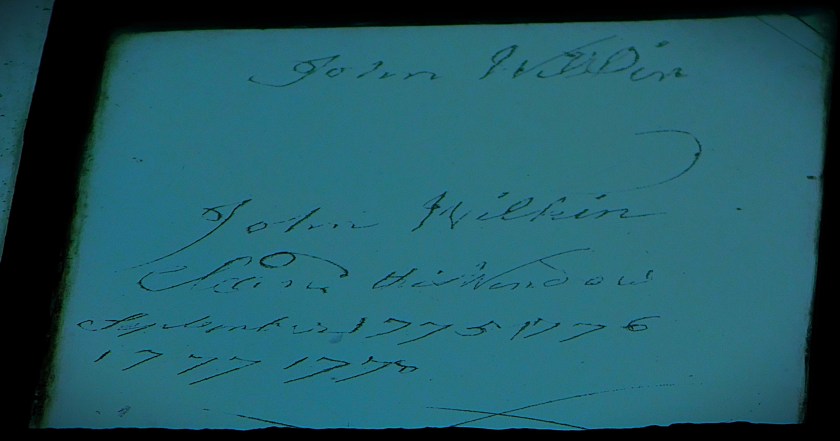 John Wilkin
John Wilkin
this Window
September 1775 1776
1777 1778